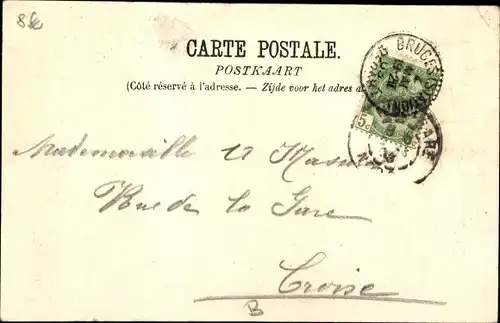 8
CARTE POSTALE.
POSTKAART
(Côté réservé à l'adresse. — Zijde voor het adres
BRUGES
5
Mademoiselle
Rue de la Gare
Croise
B